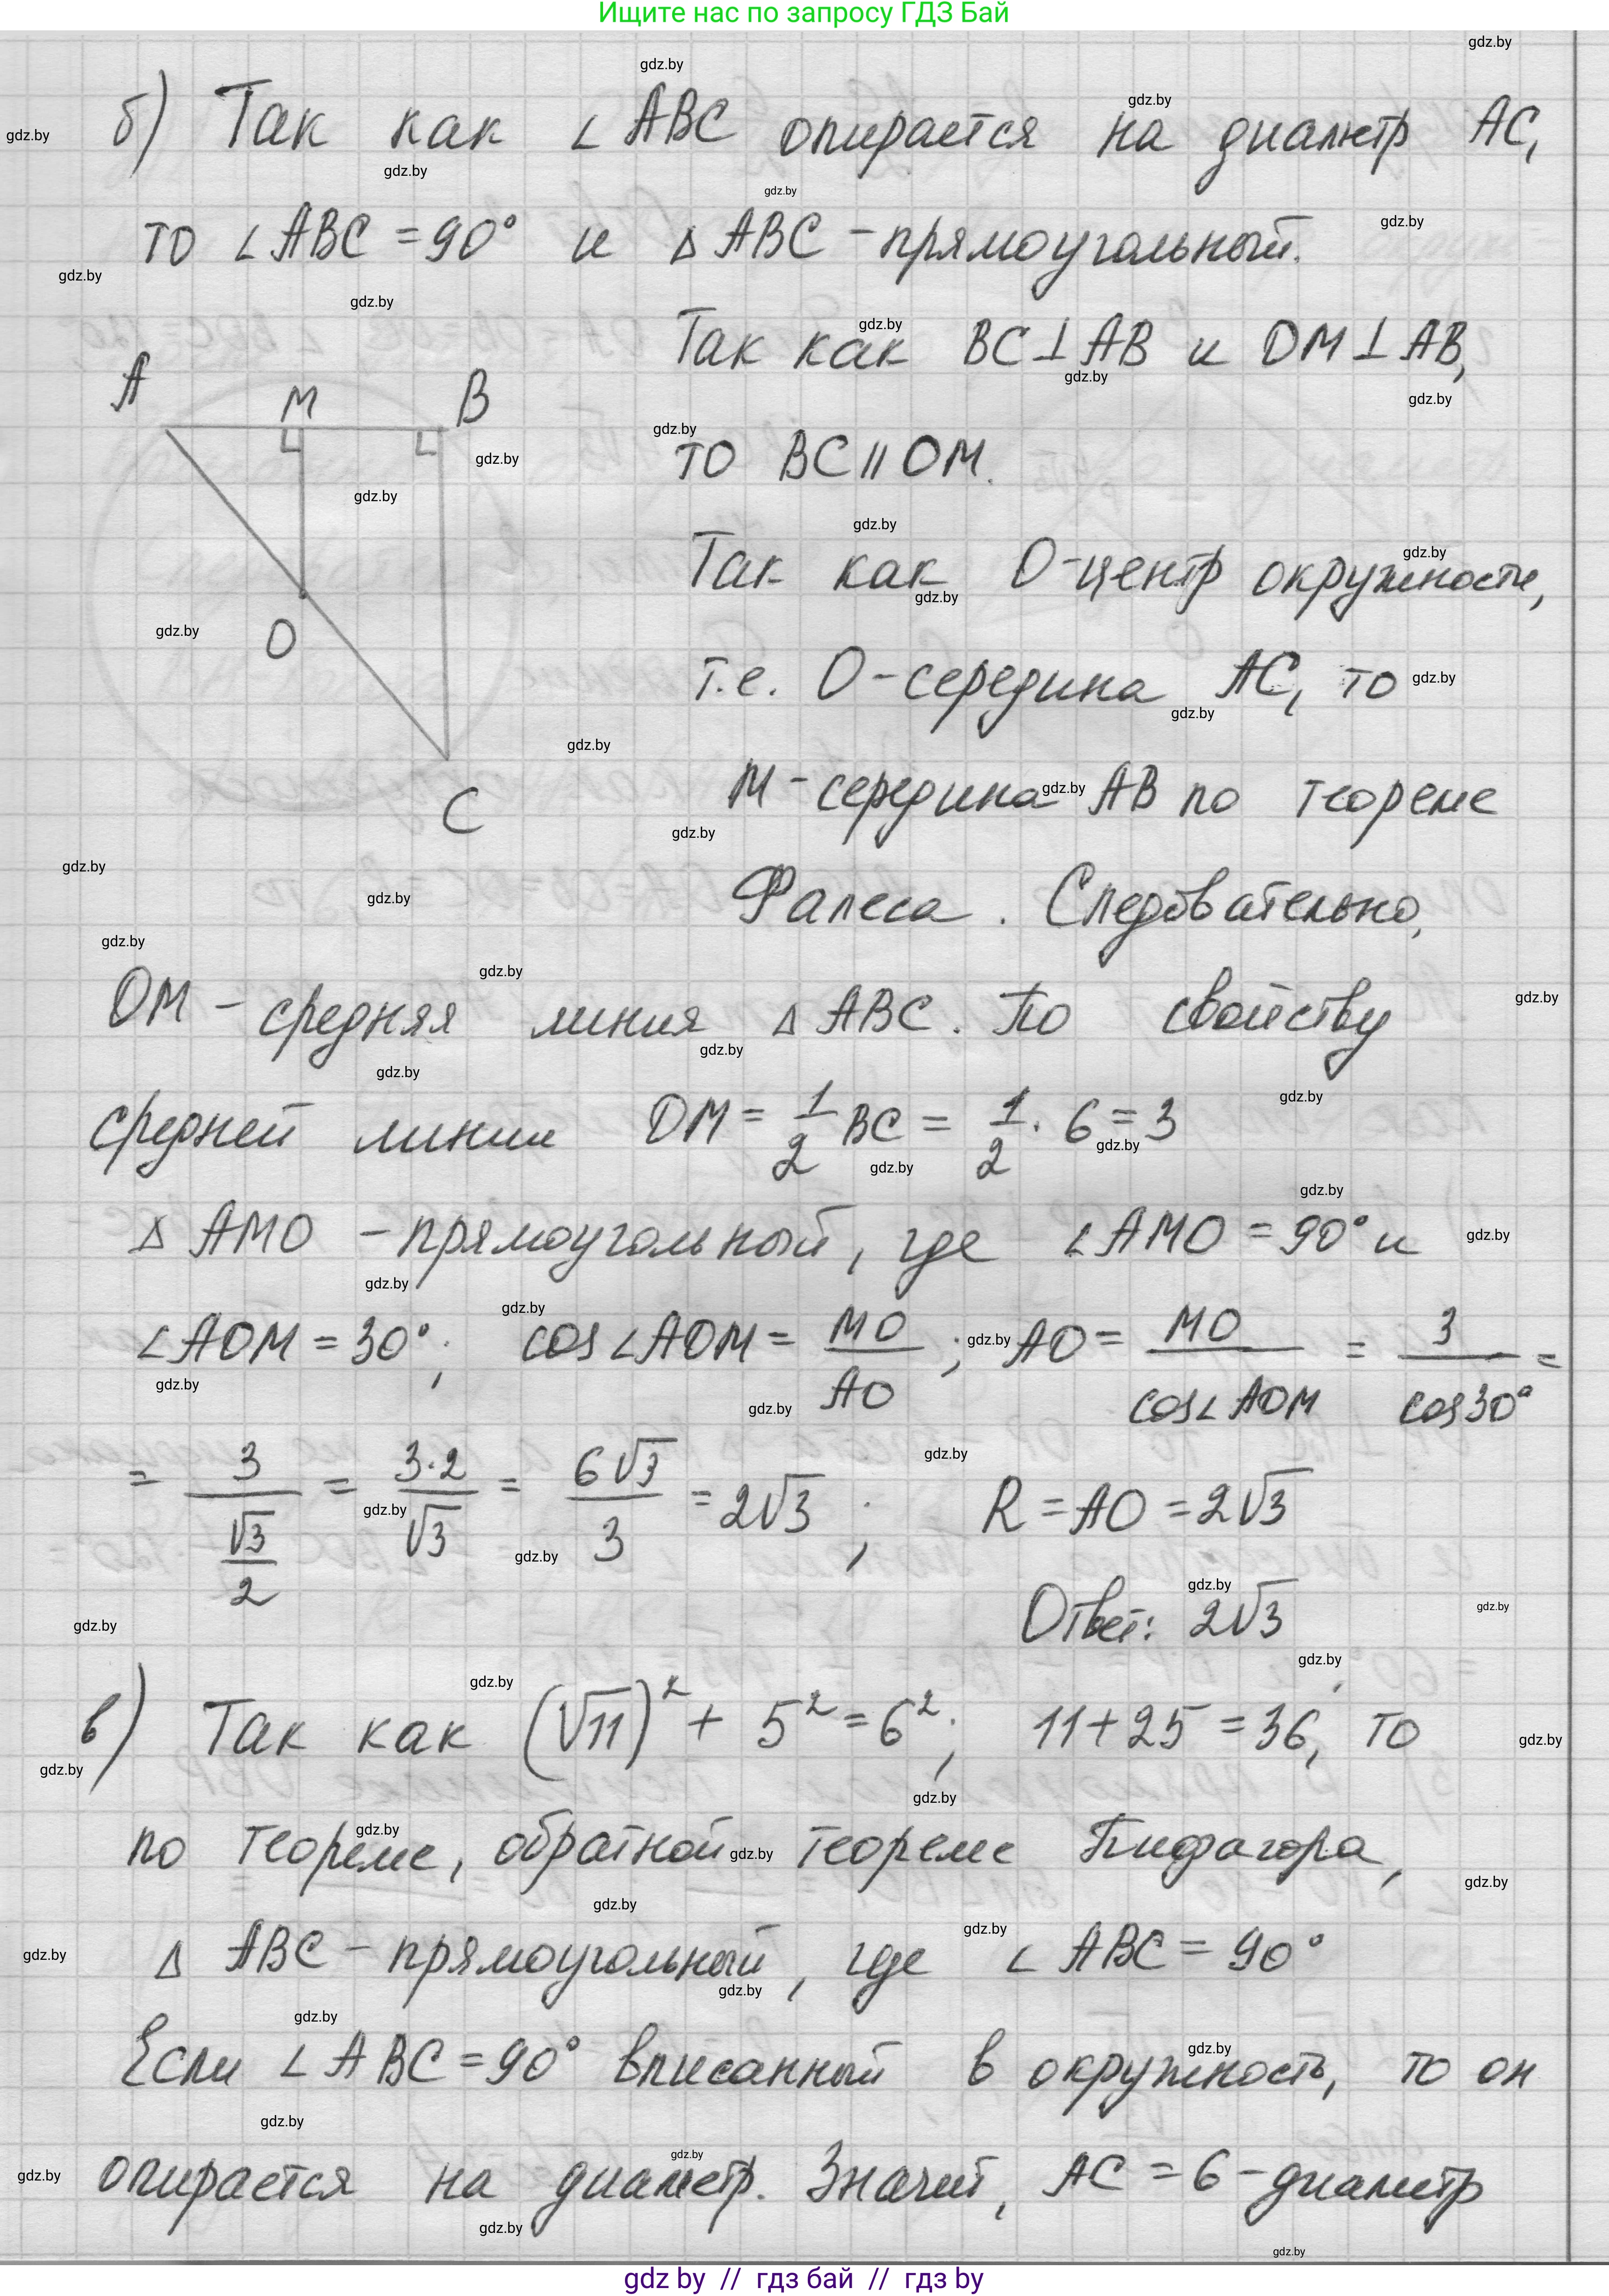 Ищите нас по запросу ГДЗ Бай
б) Так как ∠ABC опирается на диаметр AC,
то ∠ABC = 90° и △ABC - прямоугольный.
Так как BC⊥AB и OM⊥AB,
то BC∥OM.
Так как O-центр окружности,
т.е. O-середина AC, то
M-середина AB по теореме
Фалеса. Следовательно,
A M B
O
C
OM - средняя линия △ABC. По свойству
средней линии OM = 1/2 BC = 1/2 · 6 = 3
△AMO - прямоугольный, где ∠AMO = 90° и
∠AOM = 30°; cos∠AOM = MO/AO; AO = MO/cos∠AOM = 3/cos30° =
= 3/(√3/2) = 3·2/√3 = 6√3/3 = 2√3; R = AO = 2√3
Ответ: 2√3
в) Так как (√11)² + 5² = 6²; 11+25 = 36, то
по теореме, обратной теореме Пифагора,
△ABC - прямоугольный, где ∠ABC = 90°
Если ∠ABC = 90° вписанный в окружность, то он
опирается на диаметр. Значит, AC = 6 - диаметр
gdz by // гдз бай // гдз by